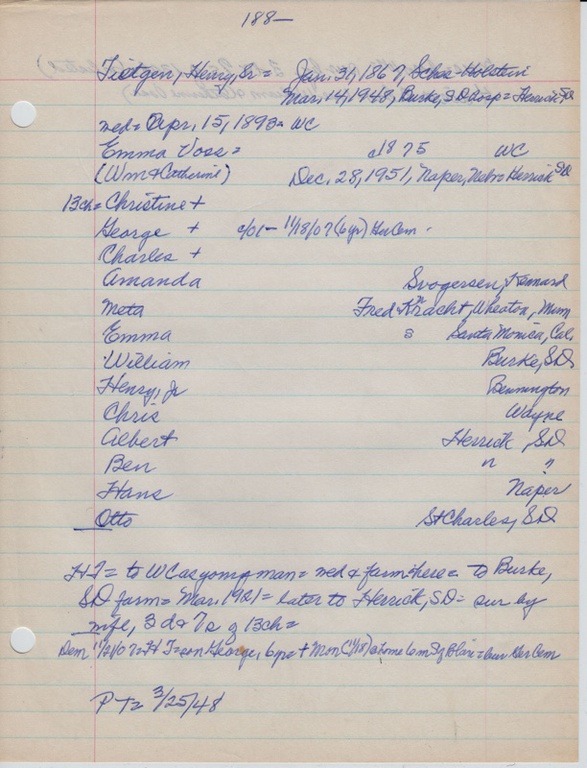 188—
Tietgen, Henry, Sr = Jan. 31, 1867, Schles-Holstein
Mar. 14, 1948, Burke, SD hosp = Herrick SD
med = Apr. 15, 1893 = WC
Emma Voss = c/1875 WC
(Wm & Catherine) Dec. 28, 1951, Naper, Nebr = Herrick SD
13ch = Christine +
George + c/01 - 11/18/07 (6yr) Her Cem -
Charles +
Amanda Svogersen, Kennard
Meta Fred Kracht, Wheaton, Minn
Emma s Santa Monica, Cal.
William Burke, SD
Henry, Jr Bennington
Chris Wayne
Albert Herrick, SD
Ben " "
Hans Naper
Otto St Charles, SD
HT = to WC as young man = med & farm here = to Burke,
SD farm = Mar. 1921 = later to Herrick, SD = sur by
wife, 3 d & 7s of 13ch =
Dem 11/21/07 = HT = son George, 6 yrs + Mon (11/18) @ home 6m S of Blair = bur Her Cem
PT = 3/25/48